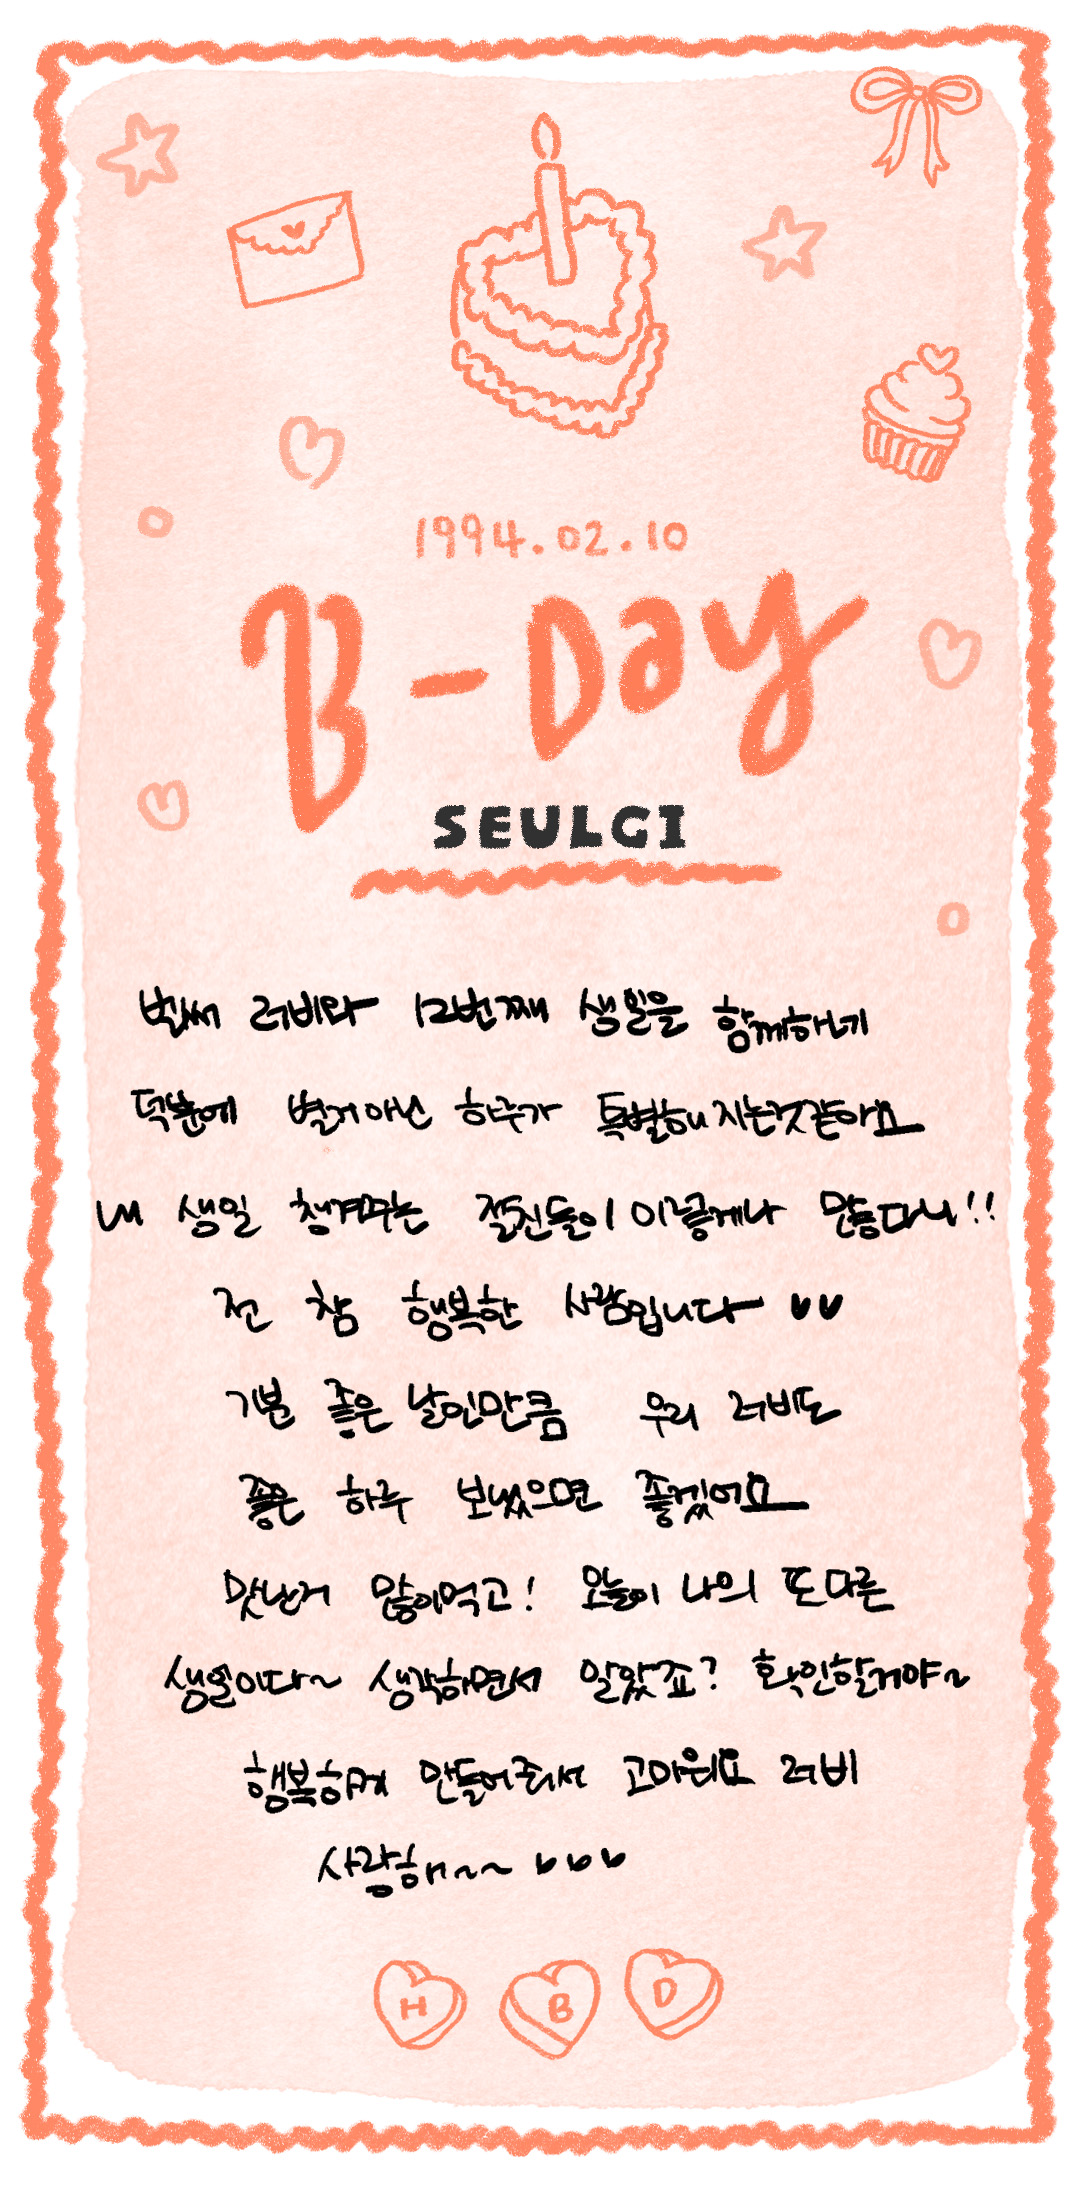 1994.02.10
B-Day
SEULGI
벌써 러비와 12번째 생일을 함께하네
덕분에 별거아닌 하루가 특별해지는것같아요
내 생일 챙겨주는 절친들이 이렇게나 많다니!!
전 참 행복한 사람입니다 ♥♥
기분 좋은 날인만큼 우리 러비도
좋은 하루 보냈으면 좋겠어요
맛난거 많이먹고! 오늘이 나의 또다른
생일이다~ 생각하면서 알았죠? 확인할거야~
행복하게 만들어줘서 고마워요 러비
사랑해~~ ♥♥♥
H B D